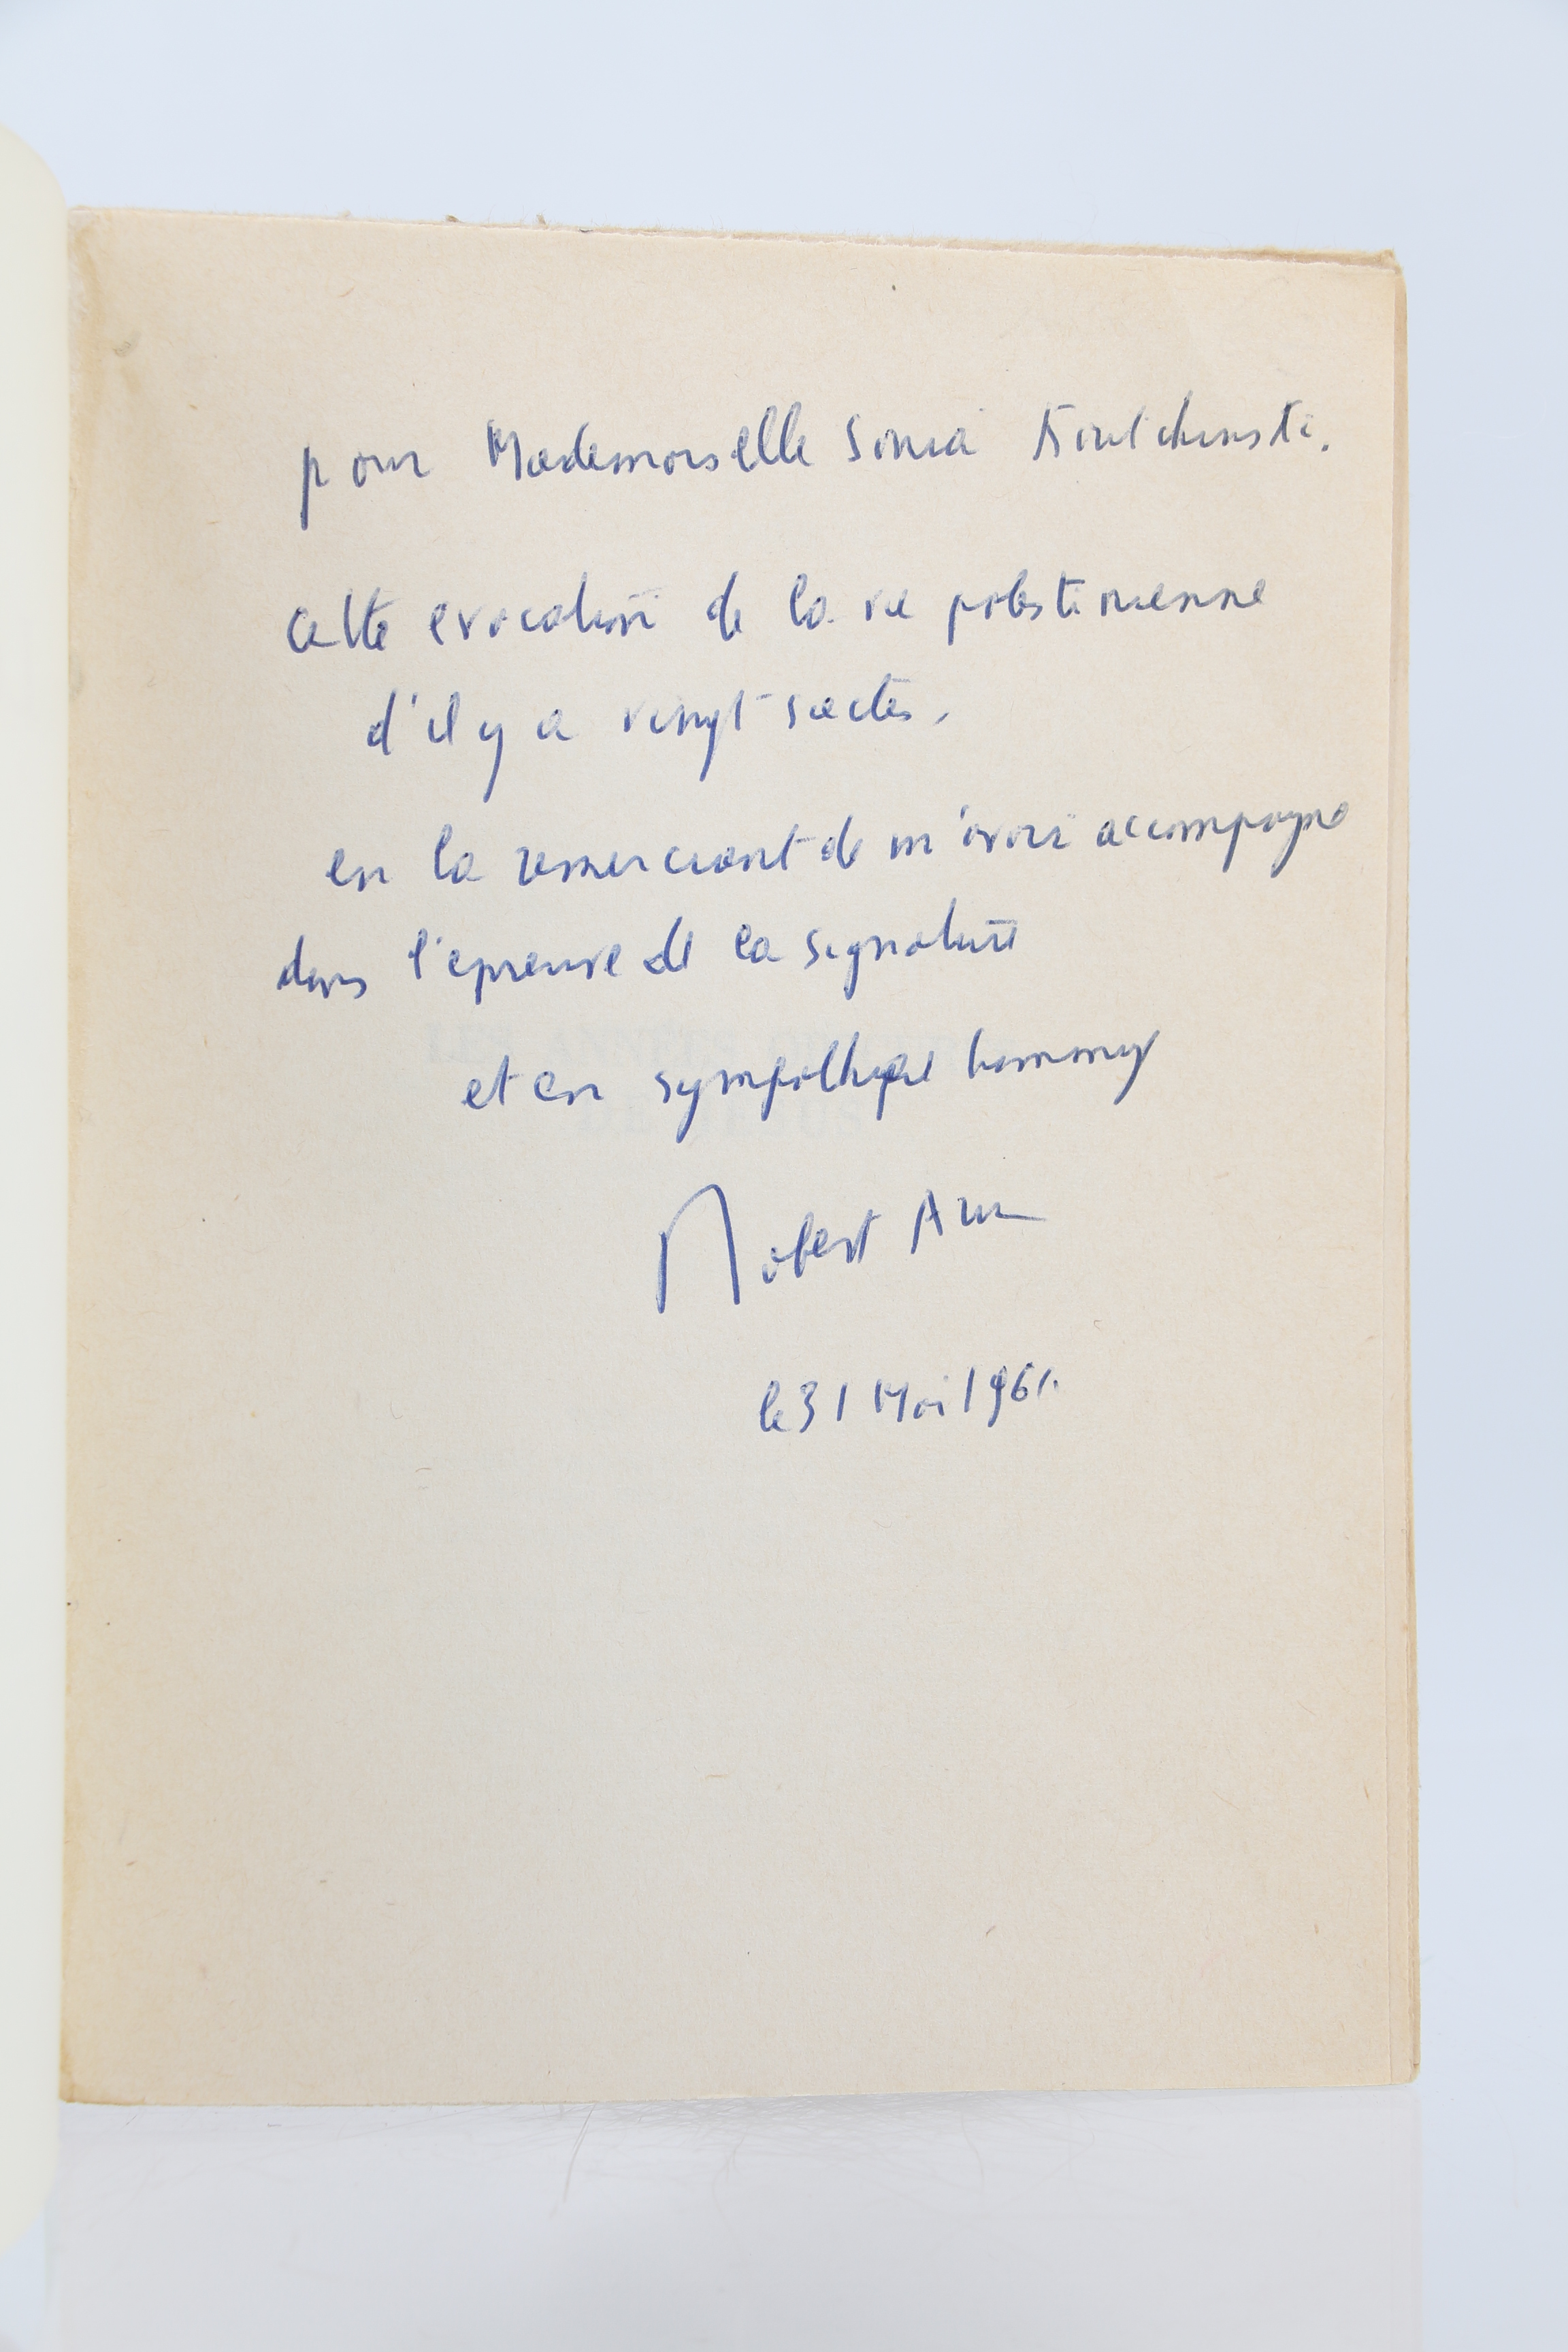 pour Mademoiselle Sonia
cette evocation de la vie palestinienne
d'il y a vingt siecles,
en la remerciant de m'avoir accompagné
dans l'epreuve de la signature
et en sympathique hommage
Robert Aron
le 31 Mai 1961.